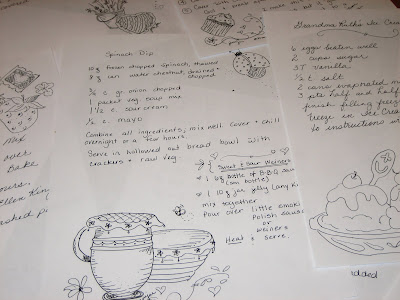 Spinach Dip
10 g frozen chopped spinach, thawed
8 g can water chestnut, drained
chopped
3/4 c gr. onion chopped
1 packet veg. soup mix
1 1/2 c. sour cream
1/2 c. mayo
Combine all ingredients; mix well. Cover + chill
overnight or a few hours.
Serve in hollowed out bread bowl with
crackers + raw veg
Sweet & Sour Weiners
1 6g bottle of B-B-Q sauce
(sm bottle)
1 10 g jar jelly (any
mix together
Pour over little smoki
Polish sausa
or
weiners
Heat & serve.
Grandma Ruth's Ice Crea
6 eggs beaten well
2 cups sugar
3T vanilla
1/2 t salt
2 cans evaporated m
3 pts half and half
finish filling freez
freeze in Ice Cream
to instructions w
Mix
Bake
Ellen King
added